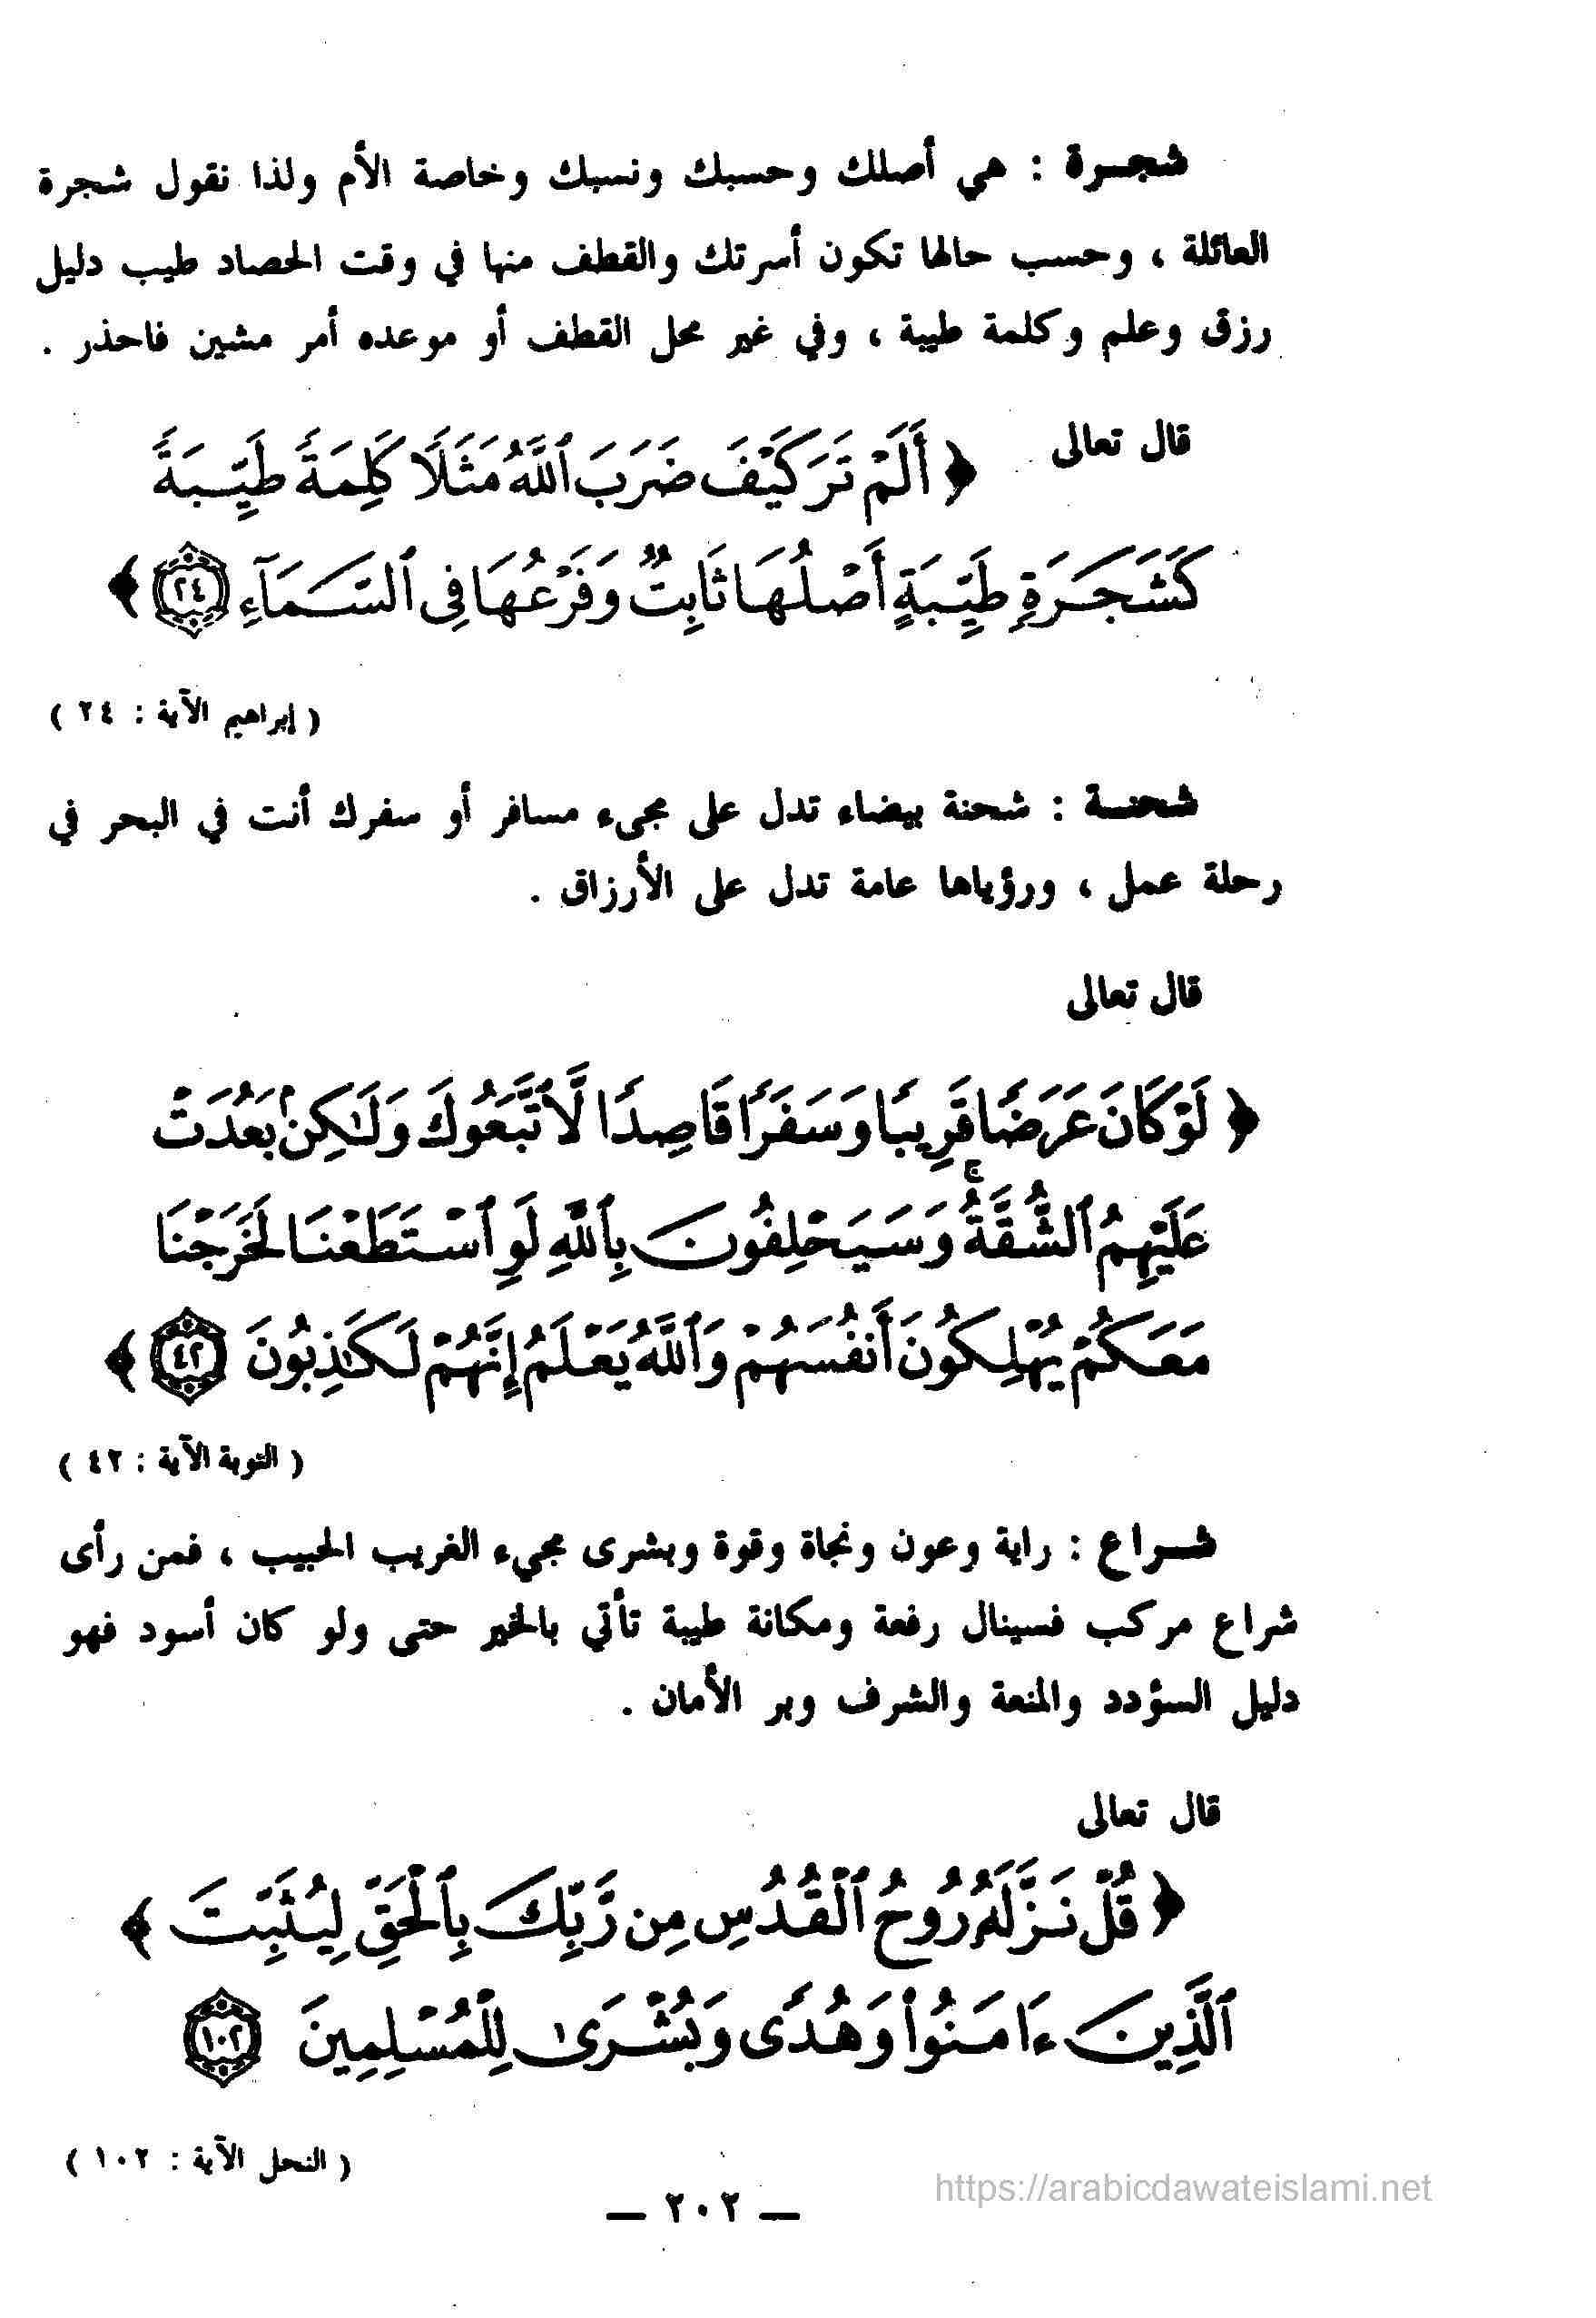 شجـرة : هي أصلك وحسبك ونسبك وخاصة الأم ولذا نقول شجرة
العائلة ، وحسب حالها تكون أسرتك والقطف منها في وقت الحصاد طيب دليل
رزق وعلم وكلمة طيبة ، وفي غير محل القطف أو موعده أمر مشين فاحذر .
قال تعالى ﴿ أَلَمْ تَرَ كَيْفَ ضَرَبَ ٱللَّهُ مَثَلًا كَلِمَةً طَيِّبَةً
كَشَجَرَةٍ طَيِّبَةٍ أَصْلُهَا ثَابِتٌ وَفَرْعُهَا فِى ٱلسَّمَآءِ ٢٤ ﴾
( إبراهيم الآية : ٢٤ )
شحنـة : شحنة بيضاء تدل على مجىء مسافر أو سفرك أنت في البحر في
رحلة عمل ، ورؤياها عامة تدل على الأرزاق .
قال تعالى
﴿ لَوْ كَانَ عَرَضًا قَرِيبًا وَسَفَرًا قَاصِدًا لَّٱتَّبَعُوكَ وَلَٰكِنۢ بَعُدَتْ
عَلَيْهِمُ ٱلشُّقَّةُ ۚ وَسَيَحْلِفُونَ بِٱللَّهِ لَوِ ٱسْتَطَعْنَا لَخَرَجْنَا
مَعَكُمْ يُهْلِكُونَ أَنفُسَهُمْ وَٱللَّهُ يَعْلَمُ إِنَّهُمْ لَكَٰذِبُونَ ٤٢ ﴾
( التوبة الآية : ٤٢ )
شـراع : راية وعون ونجاة وقوة وبشرى مجيء الغريب الحبيب ، فمن رأى
شراع مركب فسينال رفعة ومكانة طيبة تأتي بالخير حتى ولو كان أسود فهو
دليل السؤدد والمنعة والشرف وبر الأمان .
قال تعالى
﴿ قُلْ نَزَّلَهُۥ رُوحُ ٱلْقُدُسِ مِن رَّبِّكَ بِٱلْحَقِّ لِيُثَبِّتَ ﴾
ٱلَّذِينَ ءَامَنُوا۟ وَهُدًى وَبُشْرَىٰ لِلْمُسْلِمِينَ ١٠٢
( النحل الآية : ١٠٢ )
— ٢٠٢ —
https://arabicdawateislami.net